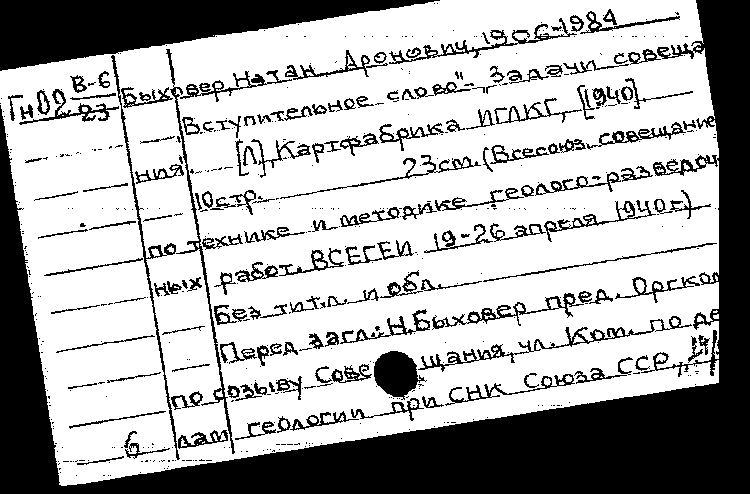 Гн02 В-6/23
Быховер, Натан Аронович, 1906-1984
"Вступительное слово"- "Задачи совеща
ния". [Л], Картфабрика ИГЛКГ, [1940].
10стр. 23см. (Всесоюз. совещание
по технике и методике геолого-разведоч
ных работ. ВСЕГЕИ 19-26 апреля 1940г.)
Без тит.л. и обл.
Перед загл.: Н.Быховер пред. Оргком
по созыву Сове щания, чл. Ком. по де
лам геологии при СНК Союза ССР,
6